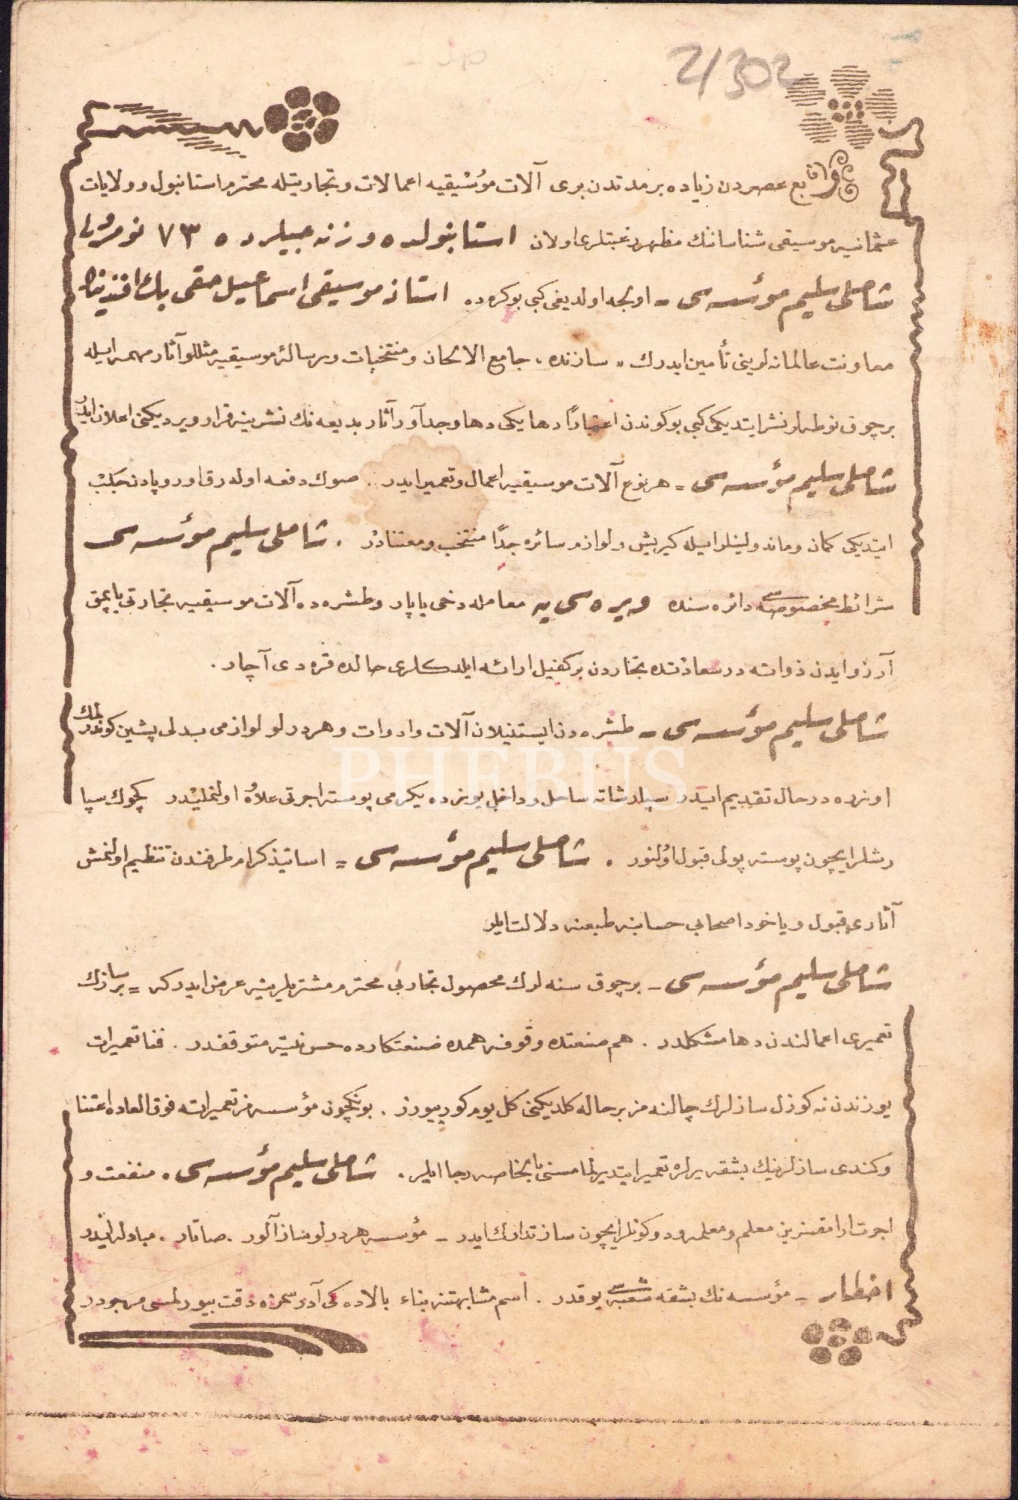 21302
ربع عصردن زیاده بر مدتدن بری آلات موسیقیه اعمالات و تجارتیله محترم استانبول و ولایات
عثمانیه موسیقی شناسانك مظهر رغبتلری اولان استانبولده وزنه جیلرده ٧٣ نومرولی
شاملی سلیم مؤسسه سی ـ اولجه اولدیغی کبی بوکره ده استاذ موسیقی اسماعیل حقی بك افندینك
معاونت عالمانه لرینی تأمین ایدرك سازنده، جامع الالحان و منتخبات و رساله موسیقیه مثللو آثار مهمه ایله
بر چوق نوطه لر نشر ایتدیکی کبی بوکوندن اعتبارًا دها یکی دها وجدآور آثار بدیعه نك نشرینه قرار ویردیکنی اعلان ایدر
شاملی سلیم مؤسسه سی ـ هر نوع آلات موسیقیه اعمال و تعمیر ایدر. صوك دفعه اوله رق اوروپادن جلب
ایتدیکی کمان وماندولینلر ایله کیریش و لوازم سائره جدًا منتخب و معتنادر . شاملی سلیم مؤسسه سی
شرائط مخصوصه سی دائره سنده ویره سی یه معامله دخی یاپار و طشره ده آلات موسیقیه تجارتی یاپمق
آرزو ایدن ذواته درسعادتده تجاردن بر کفیل ارائه ایلدکلری حالده قره دی آچار .
شاملی سلیم مؤسسه سی ـ طشره دن ایستنیلان آلات و ادوات و هر درلو لوازمی بدلی پشین کوندرلمك
اوزره درحال تقدیم ایدر سپارشاته ساحل و داخل یوزده یکرمی پوسته اجرتی علاوه اولنملیدر کوچوك سپا
رشلر ایچون پوسته پولی قبول اولنور . شاملی سلیم مؤسسه سی = اساتیذ کرام طرفندن تنظیم اولنمش
آثاری قبول و یاخود اصحابی حسابنه طبعنه دلالت ایلر
شاملی سلیم مؤسسه سی ـ بر چوق سنه لرك محصول تجاربی محترم مشتریلرینه عرض ایدر که = بر سازك
تعمیری اعمالندن دها مشکلدر . هم صنعتده وقوفه همده صنعتکارده حسن نیته متوقفدر . فنا تعمیرات
یوزندن نه کوزل سازلرك چالنه مز بر حاله کلدیکنی کل یوم کورییورز . بونكچون مؤسسه مز تعمیراته فوق العاده اعتنا
وکندی سازلرینك بشقه یرلره تعمیر ایتدیرلمامسنی بالخاصه رجا ایلر. شاملی سلیم مؤسسه سی . منفعت و
اجرت آرامقسزین معلم و معلمه و دوکونلر ایچون ساز تدارك ایدر ـ مؤسسه هر درلو ساز آلور . صاتار . مبادله ایدر
اخطار ـ مؤسسه نك بشقه شعبه سی یوقدر . اسم مشابهتنه بناء بالاده کی آدرسمزه دقت بیورلمسی مرجودر
PHEBUS